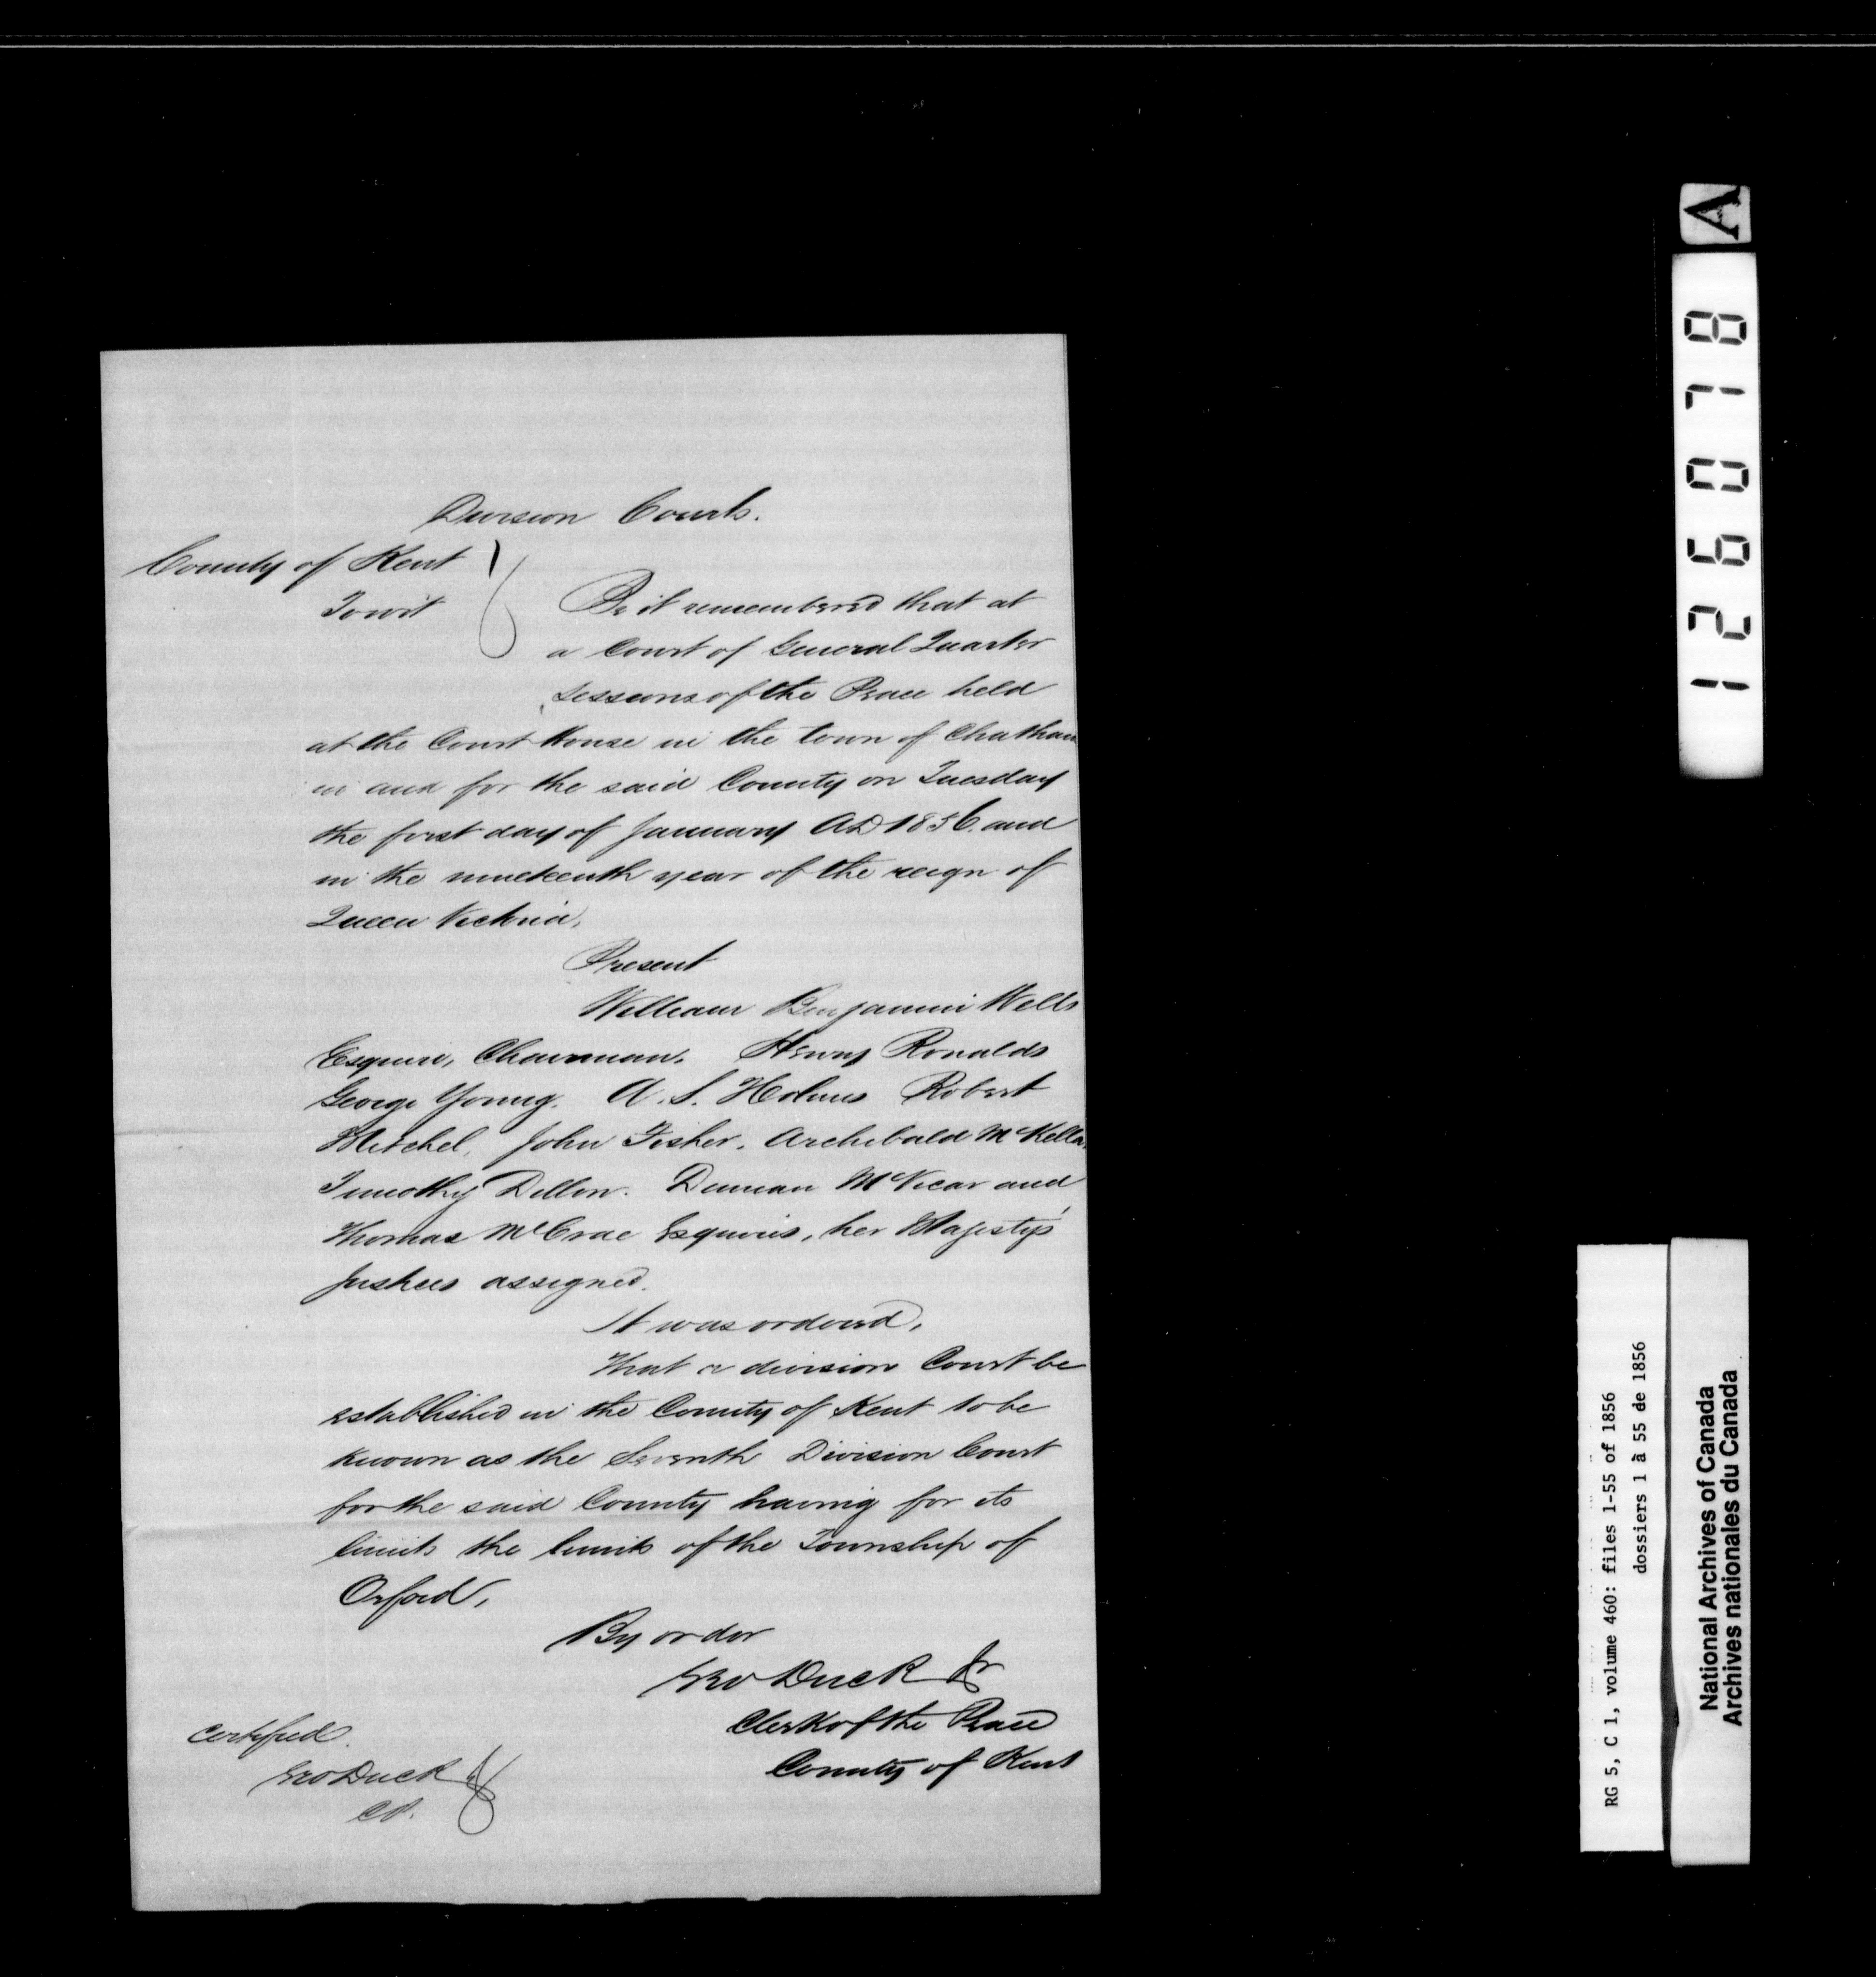 Division Courts.
County of Kent
Towit
Be it remembered that at
a Court of General Quarter
Sessions of the Peace held
at the Court House in the town of Chatham
in and for the said County on Tuesday
the first day of January AD 1856. and
in the nineteenth year of the reign of
Queen Victoria.
Present
William Benjamin Wells
Esquire, Chairman. Henry Ronalds
George Young. A. S. Holmes Robert
Mitchel, John Fisher. Archibald McKellar
Timothy Dillon. Duncan McVicar and
Thomas McCrae Esquires, her Majesty's
Justices assigned.
It was ordered,
That a division Court be
established in the County of Kent to be
known as the Seventh Division Court
for the said County having for its
limits the limits of the Township of
Orford,
By order
Geo Duck Jr
Clerk of the Peace
County of Kent
Certified.
Geo Duck Jr
CP.
A
126078
RG 5, C 1, volume 460: files 1-55 of 1856
dossiers 1 à 55 de 1856
National Archives of Canada
Archives nationales du Canada